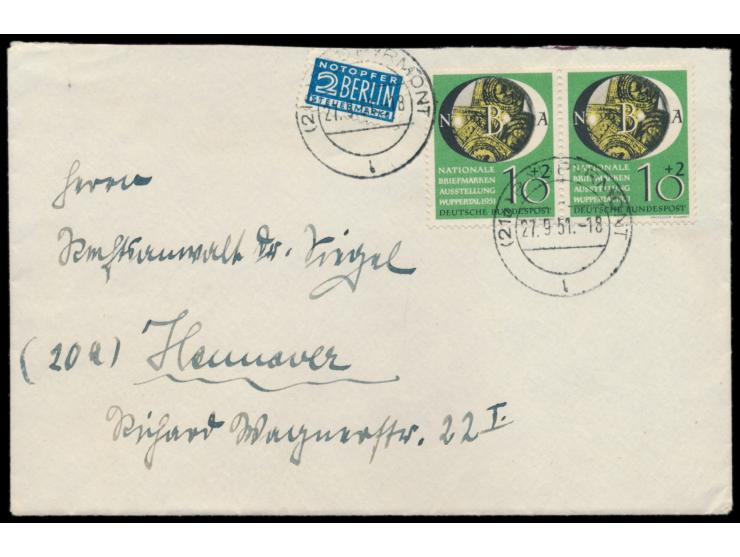 NOTOPFER
2 BERLIN
STEUERMARKE
PYRMONT
N B A
NATIONALE
BRIEFMARKEN
AUSSTELLUNG
WUPPERTAL 1951
10+2
DEUTSCHE BUNDESPOST
N B A
NATIONALE
BRIEFMARKEN
AUSSTELLUNG
WUPPERTAL 1951
10+2
DEUTSCHE BUNDESPOST
27.9.51.-18
Herrn
Rechtsanwalt Dr. Siegel
(20a) Hannover
Richard Wagnerstr. 22 I.